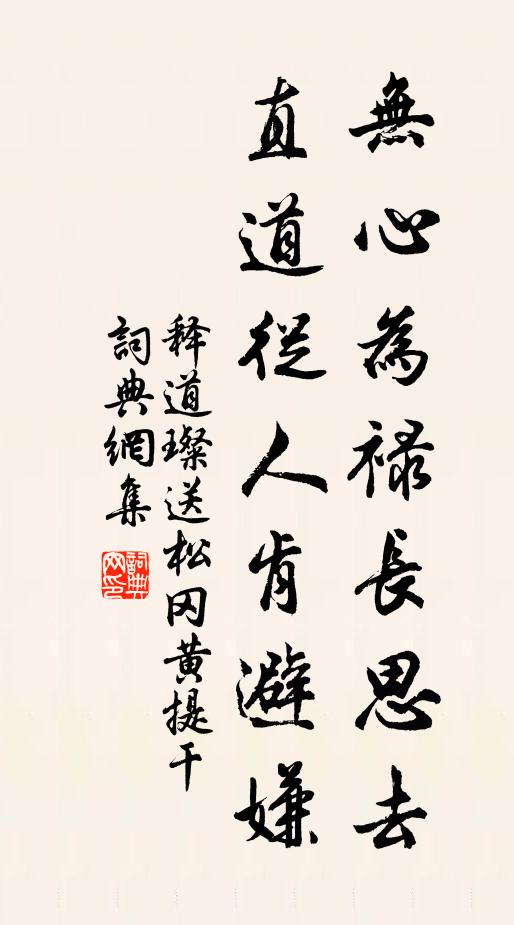 無心為祿長思去
直道從人肯避嫌
释道璨送松冈黄提干
詞典網集
詞典網印